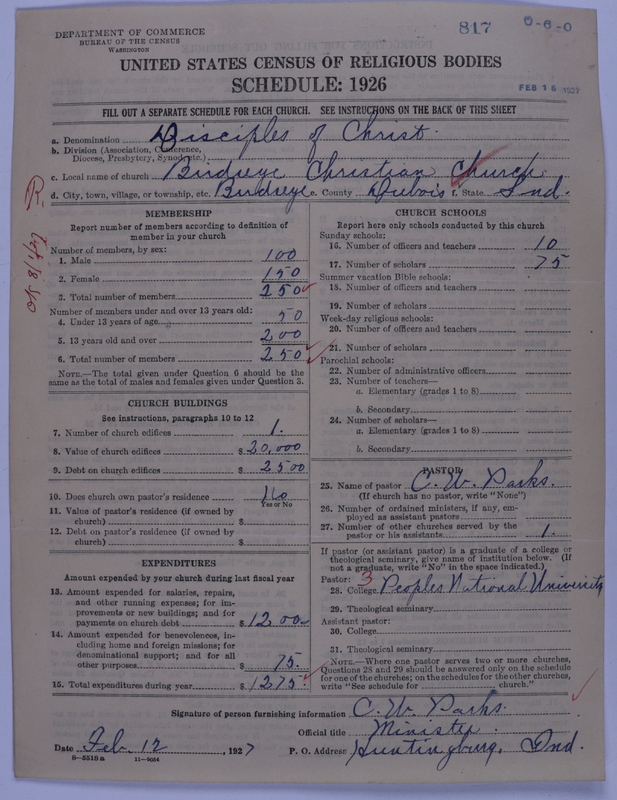 DEPARTMENT OF COMMERCE
BUREAU OF THE CENSUS
WASHINGTON
817
0-6-0
UNITED STATES CENSUS OF RELIGIOUS BODIES
SCHEDULE: 1926
FEB 16 1927
FILL OUT A SEPARATE SCHEDULE FOR EACH CHURCH. SEE INSTRUCTIONS ON THE BACK OF THIS SHEET
a. Denomination Disciples of Christ.
b. Division (Association, Conference, Diocese, Presbytery, Synod, etc.)
c. Local name of church Birdseye Christian Church
d. City, town, village, or township, etc. Birdseye e. County Dubois f. State Ind.
MEMBERSHIP
Report number of members according to definition of member in your church
Number of members, by sex:
1. Male 100
2. Female 150
3. Total number of members 250
Number of members under and over 13 years old:
4. Under 13 years of age 50
5. 13 years old and over 200
6. Total number of members 250
NOTE.—The total given under Question 6 should be the same as the total of males and females given under Question 3.
CHURCH BUILDINGS
See instructions, paragraphs 10 to 12
7. Number of church edifices 1.
8. Value of church edifices $ 20,000
9. Debt on church edifices $ 2500
10. Does church own pastor's residence No
Yes or No
11. Value of pastor's residence (if owned by church) $
12. Debt on pastor's residence (if owned by church) $
EXPENDITURES
Amount expended by your church during last fiscal year
13. Amount expended for salaries, repairs, and other running expenses; for improvements or new buildings; and for payments on church debt $ 1200
14. Amount expended for benevolences, including home and foreign missions; for denominational support; and for all other purposes $ 75.
15. Total expenditures during year $ 1275.
CHURCH SCHOOLS
Report here only schools conducted by this church
Sunday schools:
16. Number of officers and teachers 10
17. Number of scholars 75
Summer vacation Bible schools:
18. Number of officers and teachers
19. Number of scholars
Week-day religious schools:
20. Number of officers and teachers
21. Number of scholars
Parochial schools:
22. Number of administrative officers
23. Number of teachers—
a. Elementary (grades 1 to 8)
b. Secondary
24. Number of scholars—
a. Elementary (grades 1 to 8)
b. Secondary
PASTOR
25. Name of pastor C. W. Parks.
(If church has no pastor, write "None")
26. Number of ordained ministers, if any, employed as assistant pastors
27. Number of other churches served by the pastor or his assistants 1.
If pastor (or assistant pastor) is a graduate of a college or theological seminary, give name of institution below. (If not a graduate, write "No" in the space indicated.)
Pastor: 3
28. College Peoples National University
29. Theological seminary
Assistant pastor:
30. College
31. Theological seminary
NOTE.—Where one pastor serves two or more churches, Questions 28 and 29 should be answered only on the schedule for one of the churches; on the schedules for the other churches, write "See schedule for church."
Signature of person furnishing information C. W. Parks.
Official title Minister
Date Feb. 12, 1927 P. O. Address Huntingburg, Ind.
8-5518a 11-9054